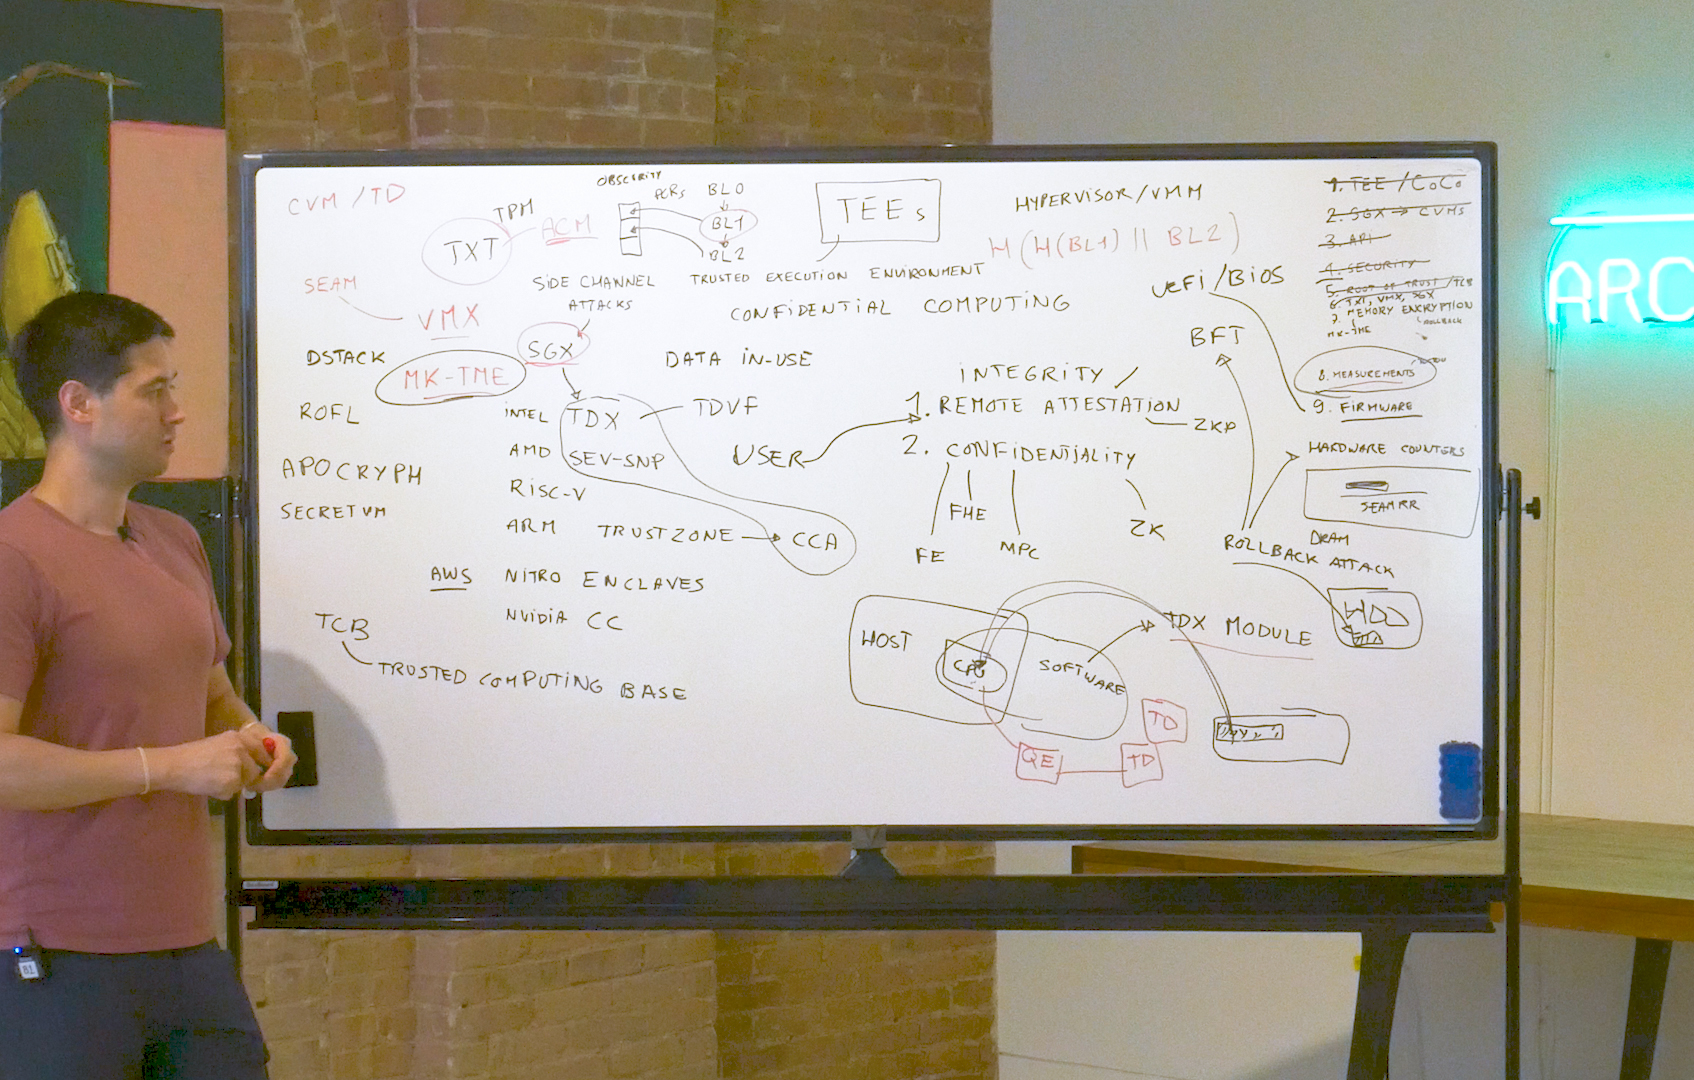 CVM / TD
TPM
TXT
ACM
OBSCURITY
PCRs
BL0
BL1
BL2
TEEs
HYPERVISOR/VMM
H(H(BL1) || BL2)
1. TEE / CoCo
2. SGX → CVMs
3. API
4. SECURITY
5. ROOT OF TRUST / TCB
6. TXT, VMX, SGX
7. MEMORY ENCRYPTION
MK-TME
ROLLBACK
8. MEASUREMENTS
9. FIRMWARE
SEAM
VMX
SIDE CHANNEL
ATTACKS
TRUSTED EXECUTION ENVIRONMENT
CONFIDENTIAL COMPUTING
UEFI/BIOS
BFT
DSTACK
MK-TME
SGX
DATA IN-USE
INTEGRITY /
1. REMOTE ATTESTATION
ZKP
ROFL
INTEL
TDX
TDVF
USER
2. CONFIDENTIALITY
HARDWARE COUNTERS
SEAMRR
DRAM
APOCRYPH
AMD
SEV-SNP
RISC-V
SECRETVM
ARM
TRUSTZONE
CCA
FHE
FE
MPC
ZK
ROLLBACK ATTACK
HDD
AWS
NITRO ENCLAVES
NVIDIA CC
TCB
TRUSTED COMPUTING BASE
HOST
CPU
SOFTWARE
TDX MODULE
TD
QE
TD
ARC
81